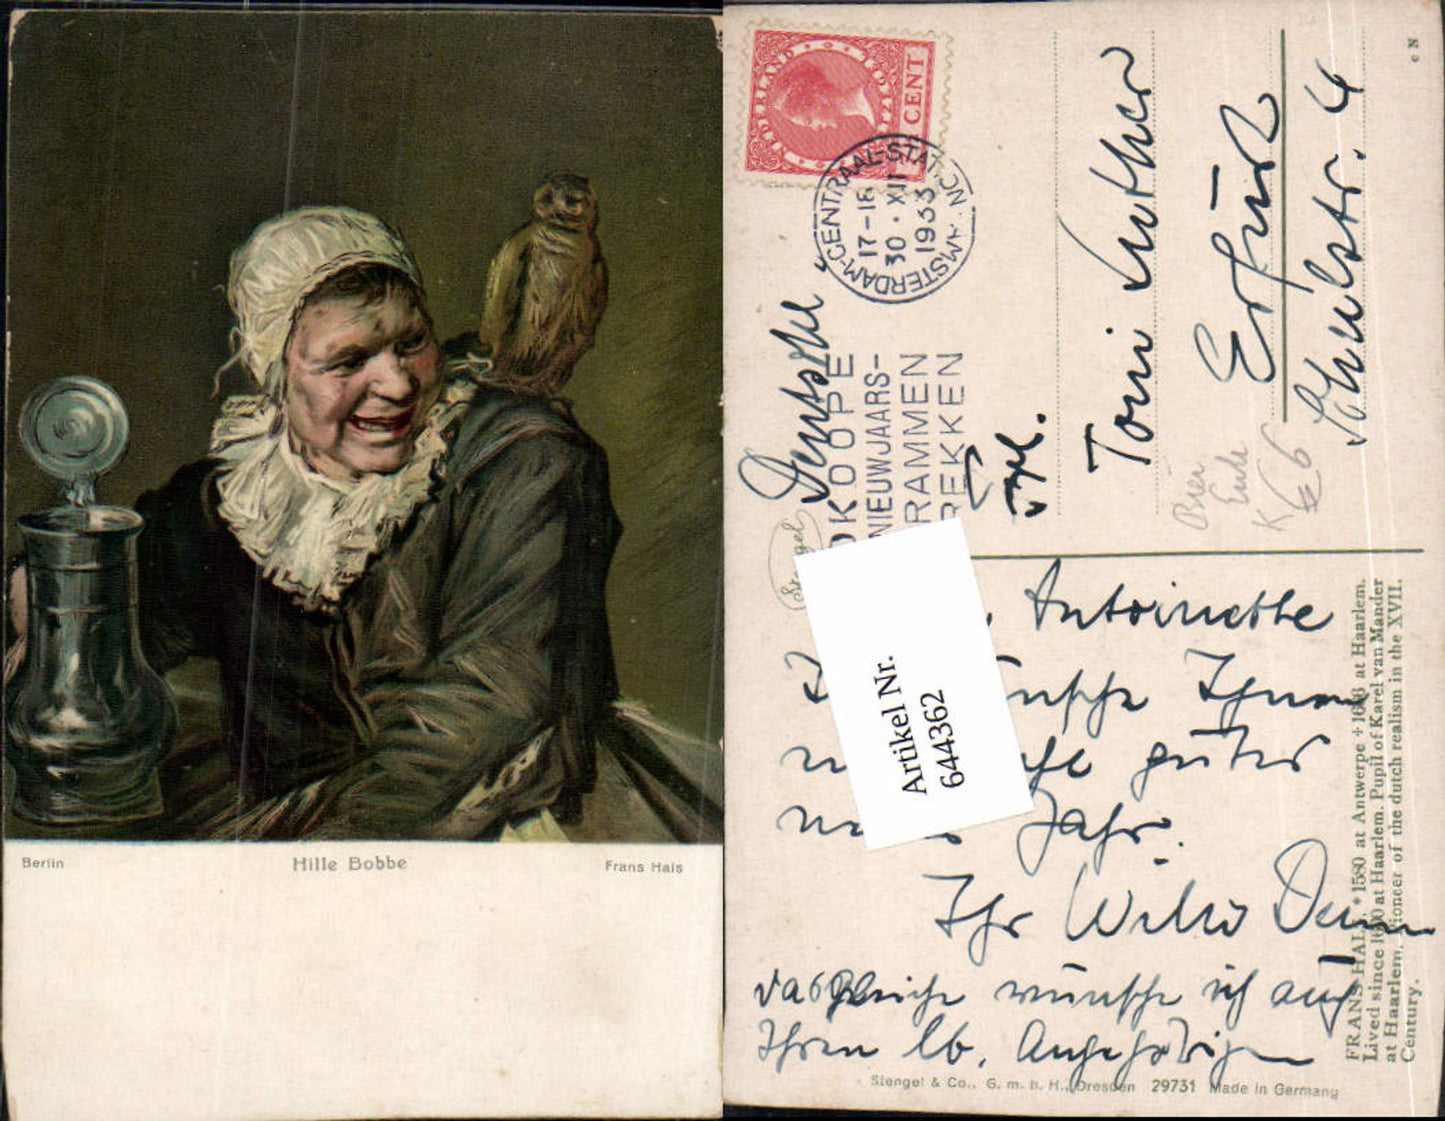 Berlin
Hille Bobbe
Frans Hals
NEDERLAND
CENT
AMSTERDAM-CENTRAAL-STATION
17-18
30 · XII
1933
KOOPE
NIEUWJAARS-
RAMMEN
REKKEN
Toni Luther
Erfurt
Schulstr. 4
Artikel Nr.
644362
Antoinette
wünsche Ihnen
gutes
Jahr.
Ihr Willi
dasgleiche wünsche ich auch
Ihren lb. Angehörigen
FRANS HALS. * 1580 at Antwerpe + 1666 at Haarlem.
Lived since 1600 at Haarlem. Pupil of Karel van Mander
at Haarlem. Pioneer of the dutch realism in the XVII.
Century.
Stengel & Co., G. m. b. H., Dresden 29731 Made in Germany